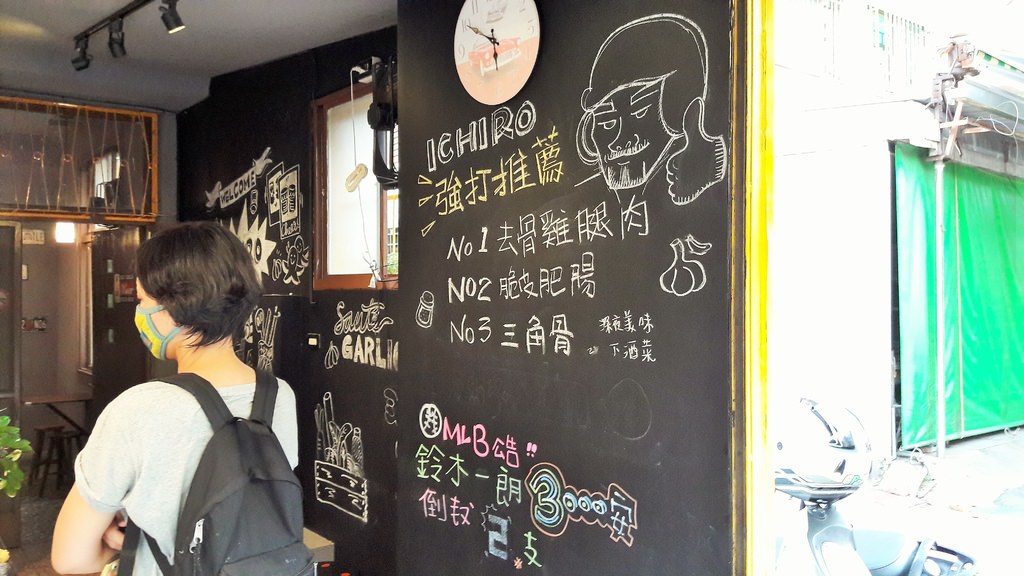 WELCOME
Sauté
GARLIC
ICHIRO
強打推薦
No1 去骨雞腿肉
No2 脆皮肥腸
No3 三角骨
深夜美味
下酒菜
MLB公告!!
鈴木一朗 3000安
倒數
2支